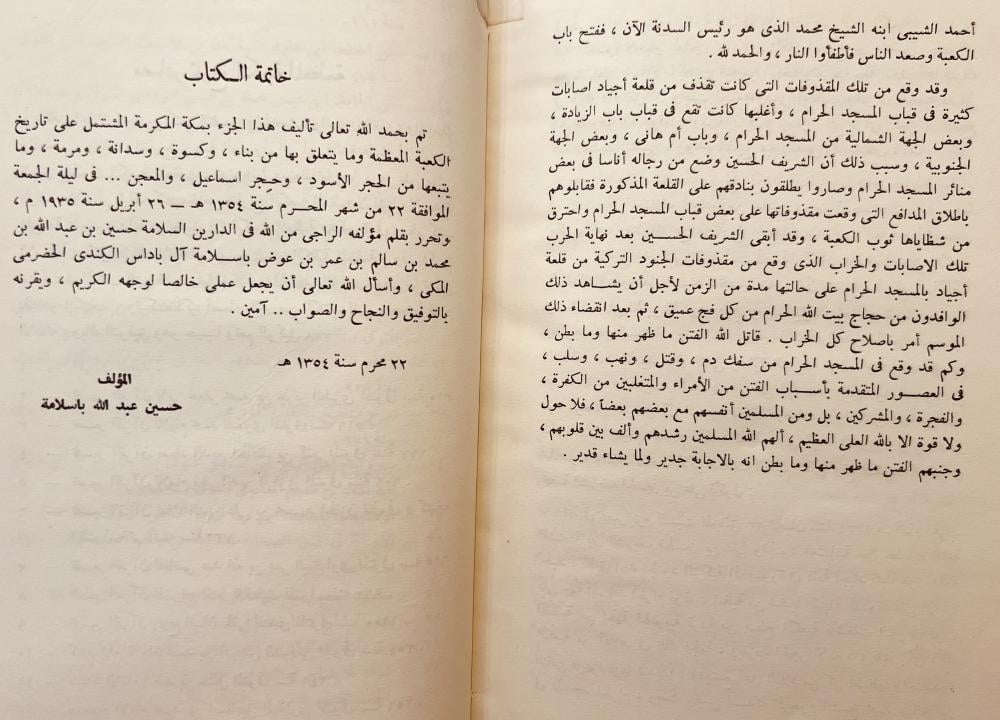 أحمد الشيبى ابنه الشيخ محمد الذى هو رئيس السدنة الآن ، ففتح باب
الكعبة وصعد الناس فأطفأوا النار ، والحمد لله .
وقد وقع من تلك المقذوفات التى كانت تقذف من قلعة أجياد اصابات
كثيرة فى قباب المسجد الحرام ، وأغلبها كانت تقع فى قباب باب الزيادة ،
وبعض الجهة الشمالية من المسجد الحرام ، وباب أم هانى ، وبعض الجهة
الجنوبية ، وسبب ذلك أن الشريف الحسين وضع من رجاله أناسا فى بعض
منائر المسجد الحرام وصاروا يطلقون بنادقهم على القلعة المذكورة فقابلوهم
باطلاق المدافع التى وقعت مقذوفاتها على بعض قباب المسجد الحرام واحترق
من شظاياها ثوب الكعبة ، وقد أبقى الشريف الحسين بعد نهاية الحرب
تلك الاصابات والخراب الذى وقع من مقذوفات الجنود التركية من قلعة
أجياد بالمسجد الحرام على حالتها مدة من الزمن لأجل أن يشاهد ذلك
الوافدون من حجاج بيت الله الحرام من كل فج عميق ، ثم بعد انقضاء ذلك
الموسم أمر باصلاح كل الخراب . قاتل الله الفتن ما ظهر منها وما بطن ،
وكم قد وقع فى المسجد الحرام من سفك دم ، وقتل ، ونهب ، وسلب ،
فى العصور المتقدمة بأسباب الفتن من الأمراء والمتغلبين من الكفرة ،
والفجرة ، والمشركين ، بل ومن المسلمين أنفسهم مع بعضهم بعضا ، فلا حول
ولا قوة الا بالله العلى العظيم ، ألهم الله المسلمين رشدهم وألف بين قلوبهم ،
وجنبهم الفتن ما ظهر منها وما بطن انه بالاجابة جدير ولما يشاء قدير .
خاتمة الكتاب
تم بحمد الله تعالى تأليف هذا الجزء بمكة المكرمة المشتمل على تاريخ
الكعبة المعظمة وما يتعلق بها من بناء ، وكسوة ، وسدانة ، ومرمة ، وما
يتبعها من الحجر الأسود ، وحجر اسماعيل ، والمعجن ... فى ليلة الجمعة
الموافقة ٢٢ من شهر المحرم سنة ١٣٥٤ هـ ــ ٢٦ أبريل سنة ١٩٣٥ م ،
وتحرر بقلم مؤلفه الراجى من الله فى الدارين السلامة حسين بن عبد الله بن
محمد بن سالم بن عمر بن عوض باسلامة آل باداس الكندى الحضرمى
المكى ، وأسأل الله تعالى أن يجعل عملى خالصا لوجهه الكريم ، ويقرنه
بالتوفيق والنجاح والصواب .. آمين .
٢٢ محرم سنة ١٣٥٤ هـ
المؤلف
حسين عبد الله باسلامة